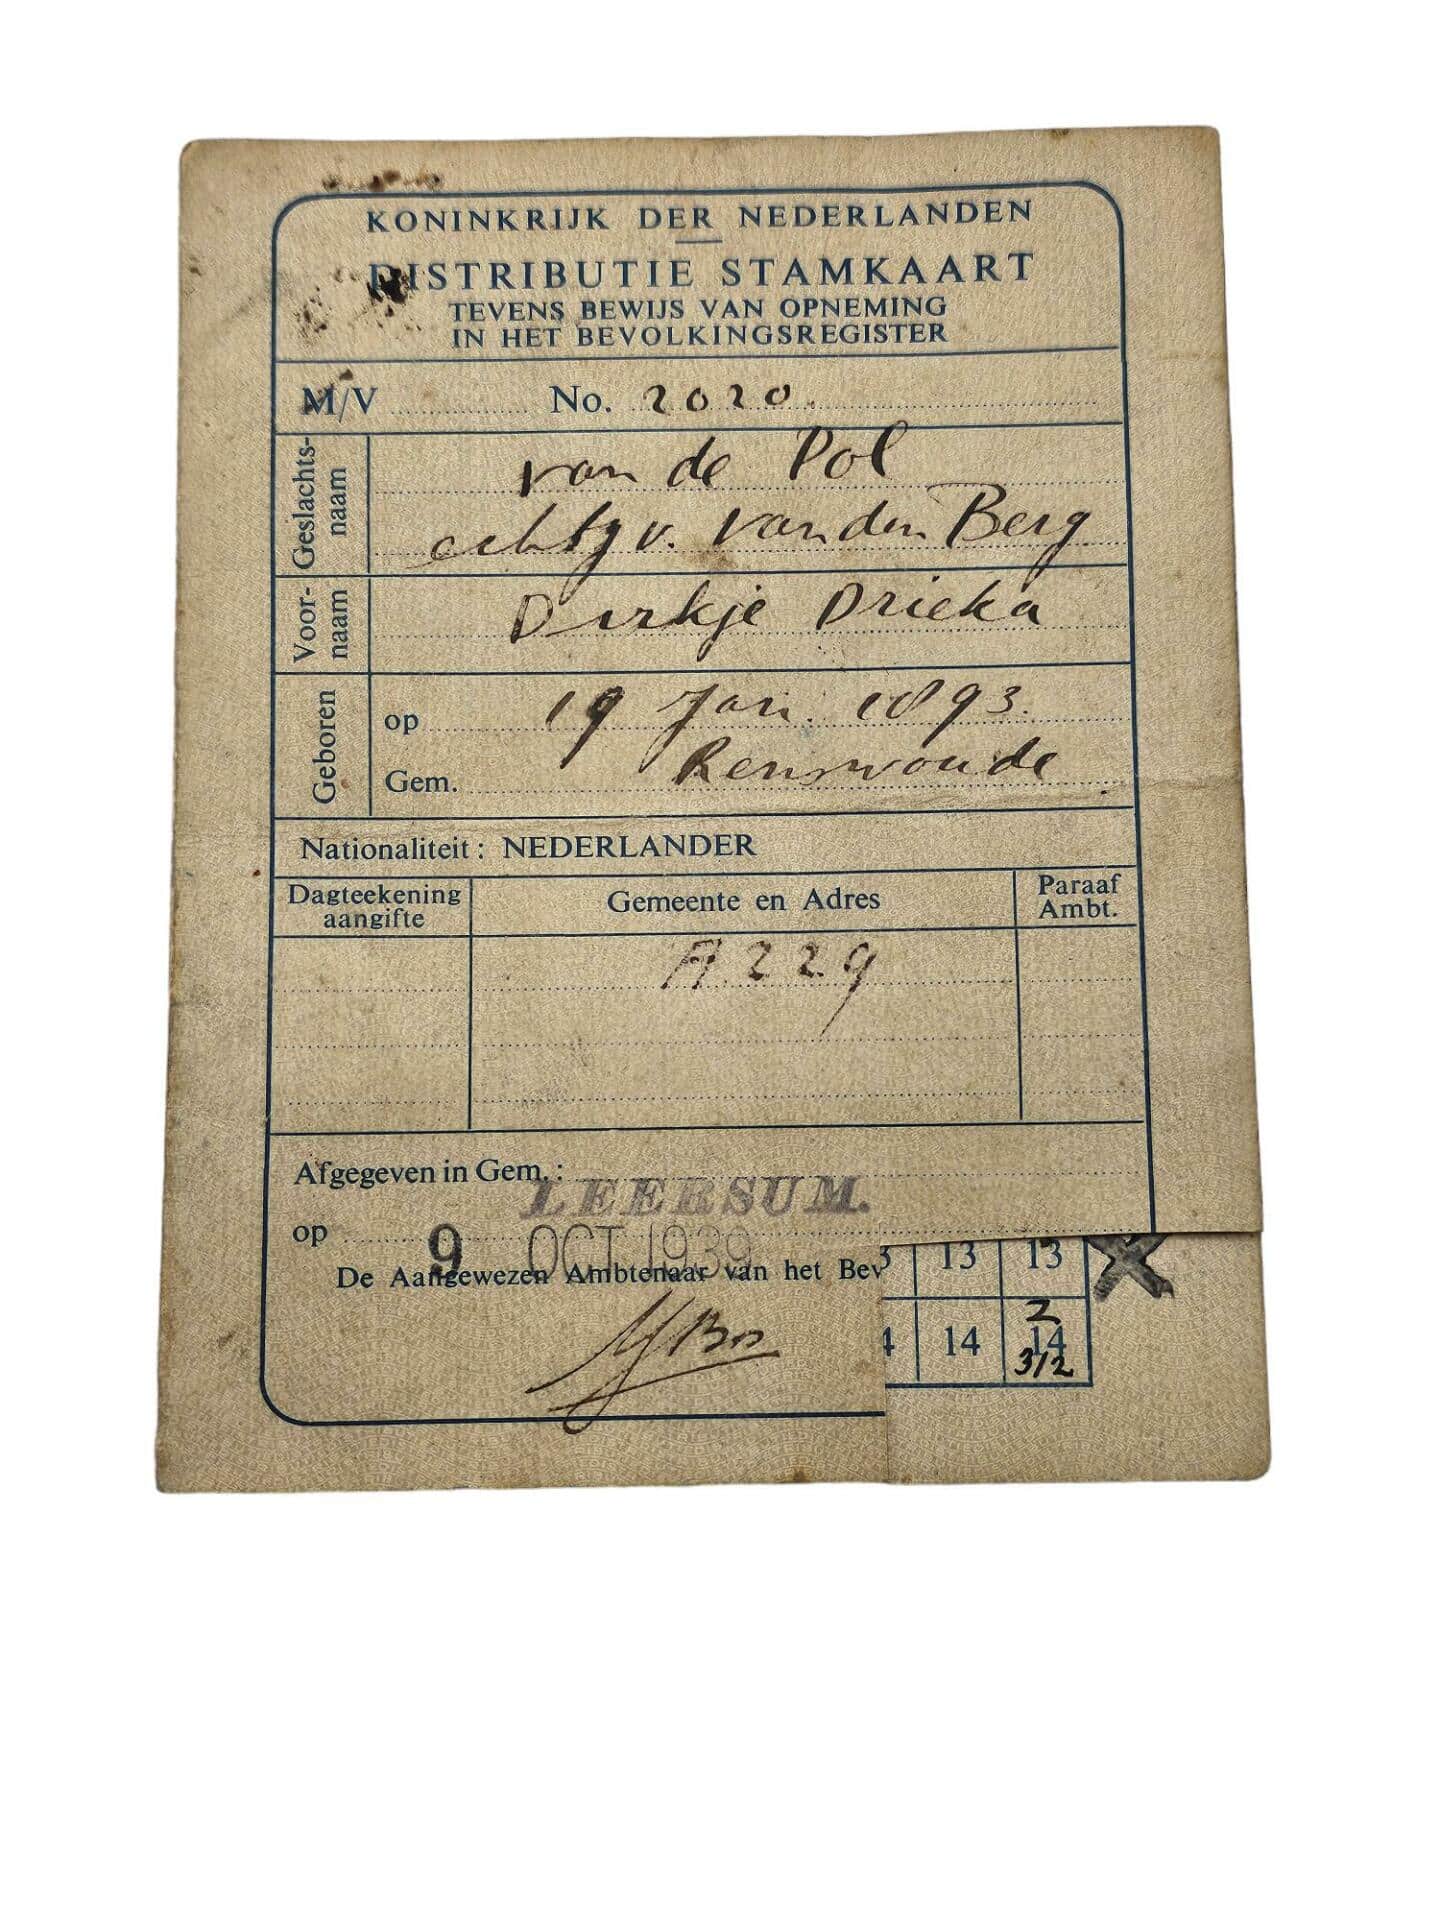 KONINKRIJK DER NEDERLANDEN
DISTRIBUTIE STAMKAART
TEVENS BEWIJS VAN OPNEMING
IN HET BEVOLKINGSREGISTER
M/V No. 2020.
Geslachts-
naam
van de Pol
echtg v. van den Berg
Voor-
naam
Dirkje Drieka
Geboren
op 19 Jan. 1893.
Gem. Renswoude
Nationaliteit: NEDERLANDER
Dagteekening
aangifte
Gemeente en Adres
Paraaf
Ambt.
A. 229
Afgegeven in Gem.: LEERSUM.
op 9 OCT. 1939
De Aangewezen Ambtenaar van het Bev
3 13 13
4 14 14
2
312